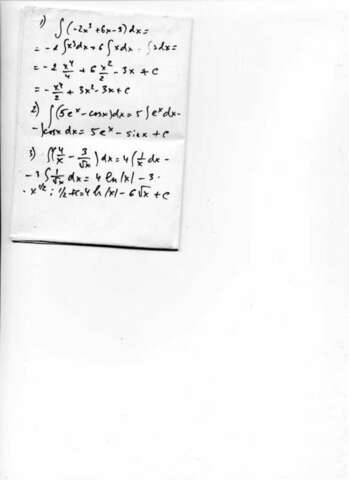 1) ∫(-2x³+6x-3)dx=
=-2∫x³dx+6∫xdx-∫3dx=
=-2 x⁴/4 + 6 x²/2 - 3x + c
=-x⁴/2 + 3x² - 3x + c
2) ∫(5eˣ-cosx)dx=5∫eˣdx-
-∫cosxdx=5eˣ-sinx+c
3) ∫(4/x - 3/√x)dx=4∫1/x dx-
-3∫1/√x dx=4ln|x|-3·
·x^1/2 : 1/2+c=4ln|x|-6√x+c